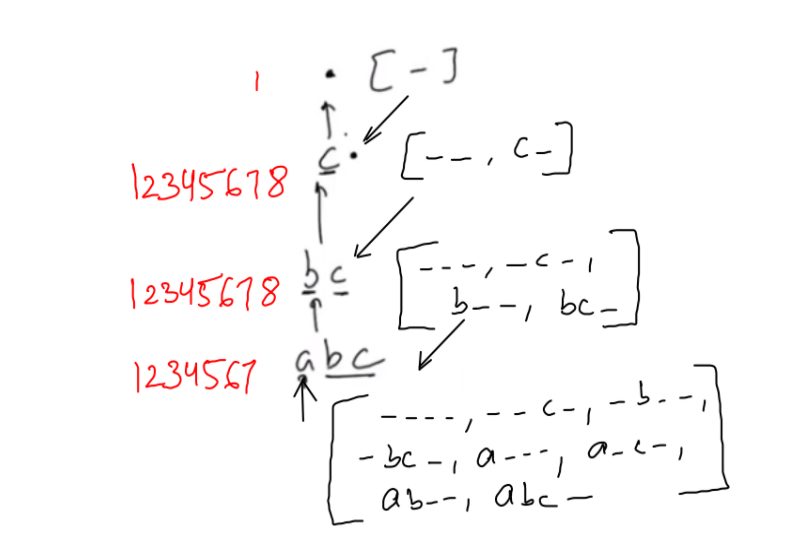 1 . [ - ]
12345678 c . [ - - , c - ]
[ - - - , - c - ,
12345678 b c
b - - , bc - ]
1234567 a b c
[ - - - - , - - c - , - b - - ,
- bc - , a - - - , a - c - ,
ab - - , abc - ]